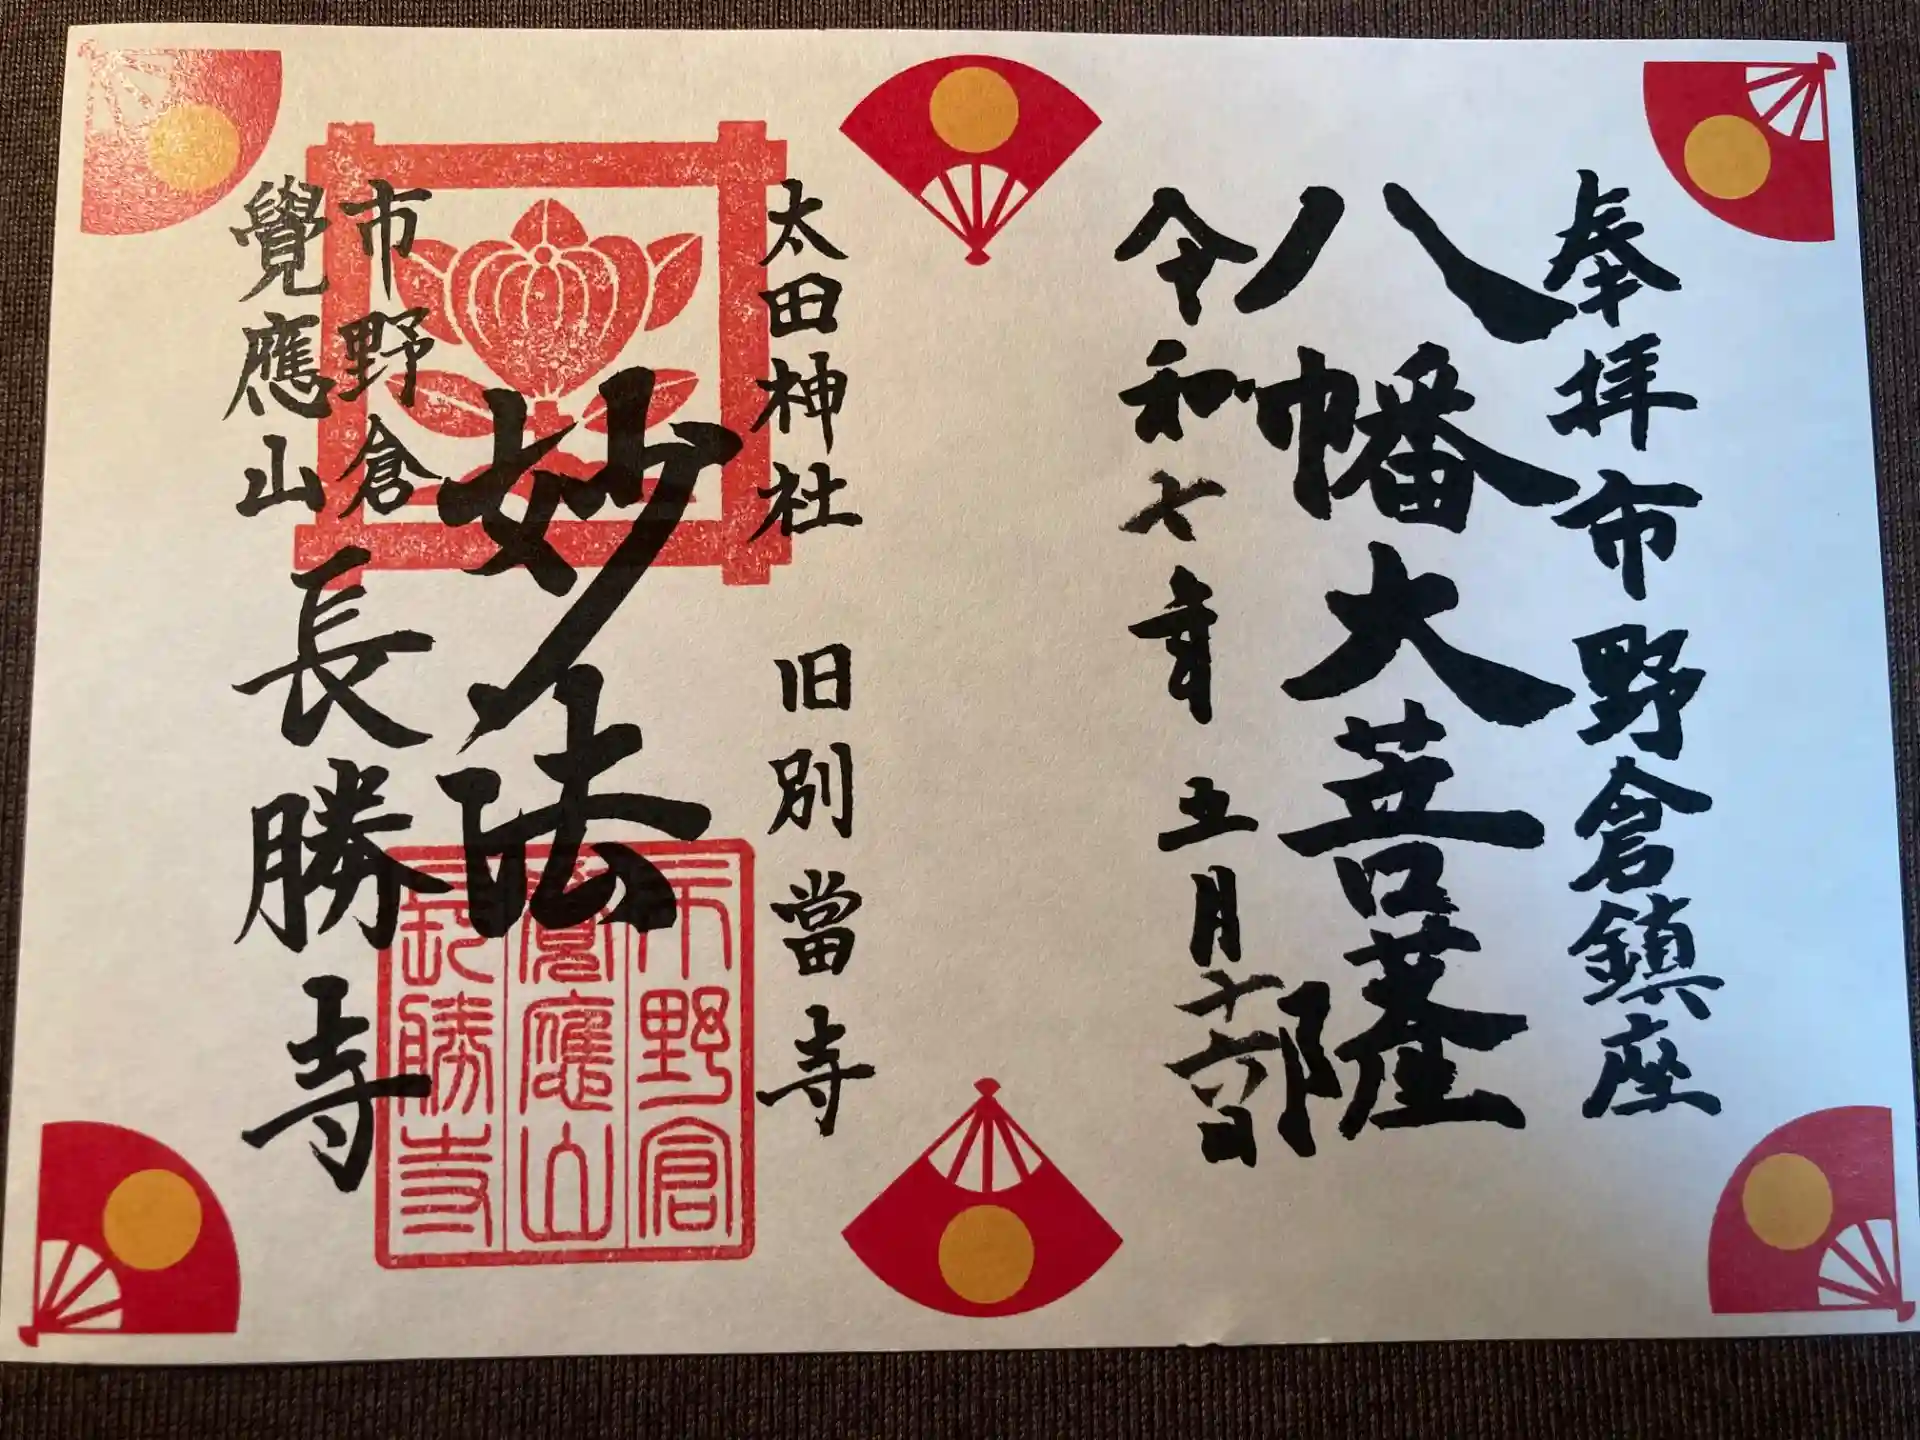 奉拝市野倉鎮座
八幡大菩薩
令和七年五月十六日
太田神社 旧別當寺
妙法
市野倉
覺應山 長勝寺
市野倉
覺應山
長勝寺